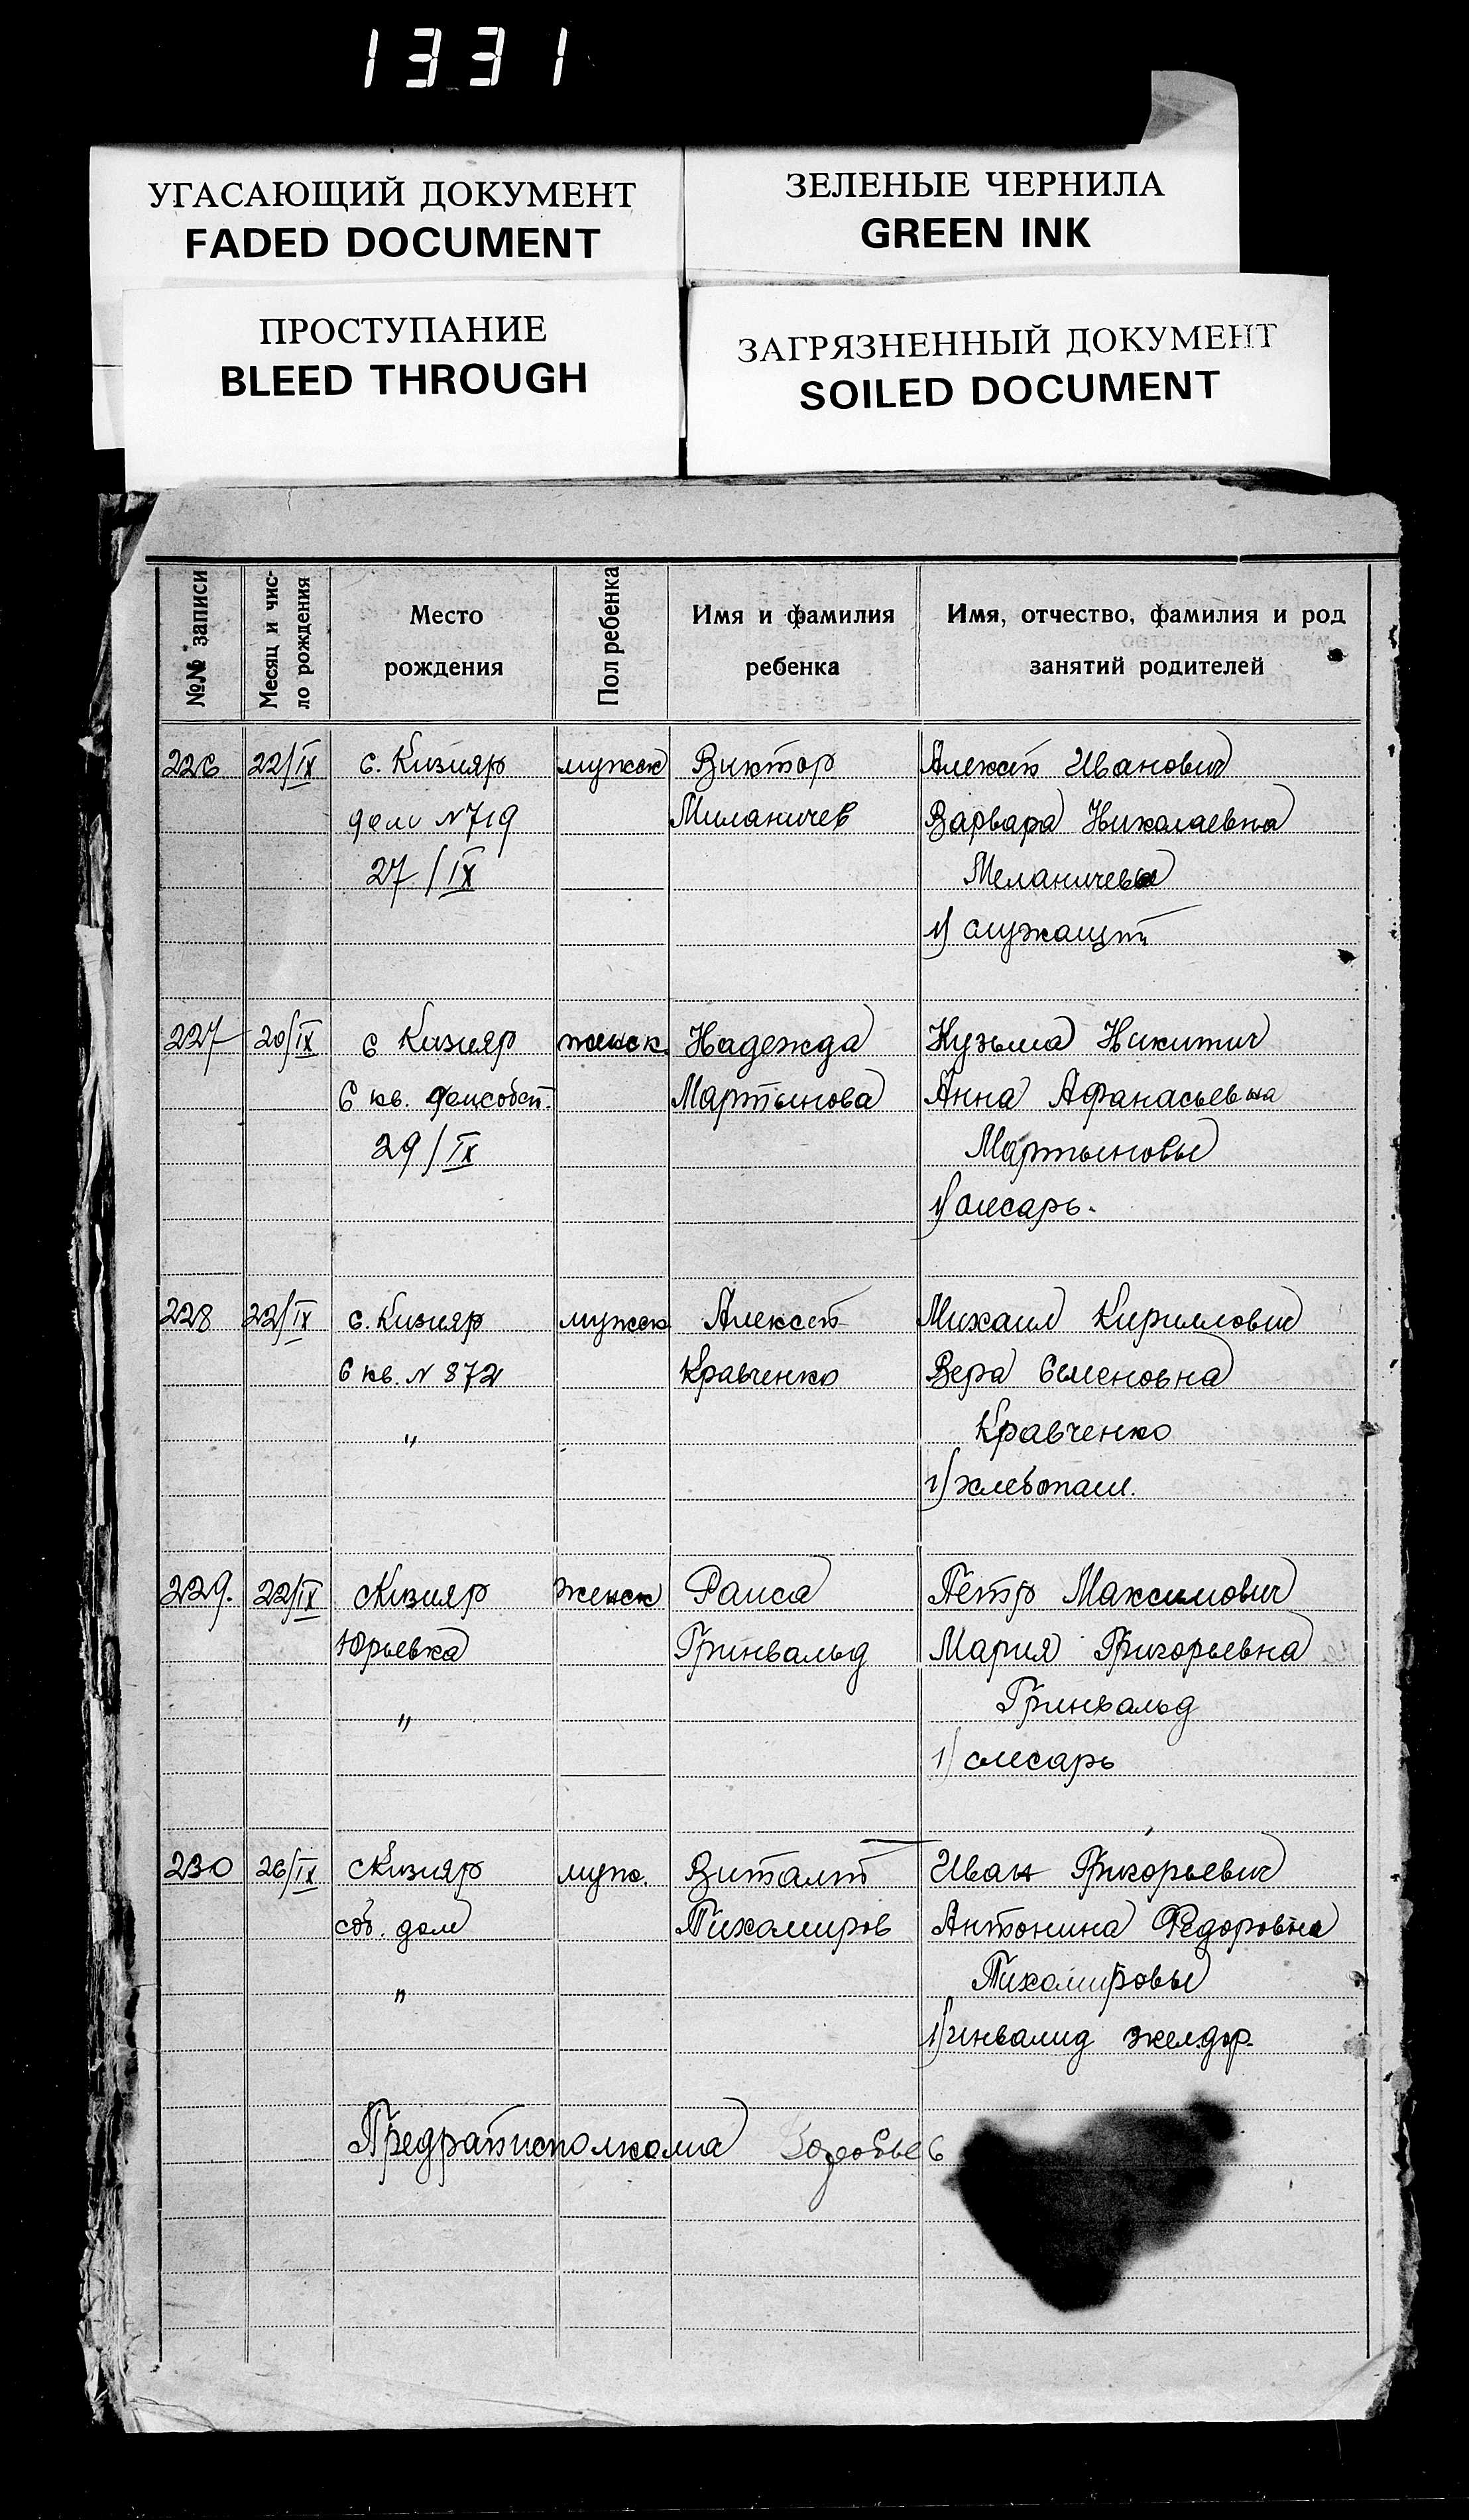 1331
УГАСАЮЩИЙ ДОКУМЕНТ
FADED DOCUMENT
ЗЕЛЕНЫЕ ЧЕРНИЛА
GREEN INK
ПРОСТУПАНИЕ
BLEED THROUGH
ЗАГРЯЗНЕННЫЙ ДОКУМЕНТ
SOILED DOCUMENT
№№ записи
Месяц и чис-
ло рождения
Место
рождения
Пол ребенка
Имя и фамилия
ребенка
Имя, отчество, фамилия и род
занятий родителей
226 22/IX с. Кизияр мужск Виктор Алексей Иванович
дом N 719 Миланичев Варвара Николаевна
27/IX Меланичевы
1) служащий
227 20/IX с Кизияр женск. Надежда Кузьма Никитич
6 кв. Мартынова Анна Афанасьевна
29/IX Мартыновы
1) слесарь.
228 22/IX с. Кизияр мужск Алексей Михаил Кириллович
6 кв. N 872 Кравченко Вера Семеновна
" Кравченко
1) хлебопаш.
229. 22/IX с Кизияр женск Раиса Петр Максимович
Юрьевка Гринвальд Мария Григорьевна
" Гринвальд
1) слесарь
230 26/IX с Кизияр муж. Виталий Иван Григорьевич
соб. дом Тихомиров Антонина Федоровна
" Тихомировы
1) инвалид жел.дор.
Предрайисполкома Воробьев